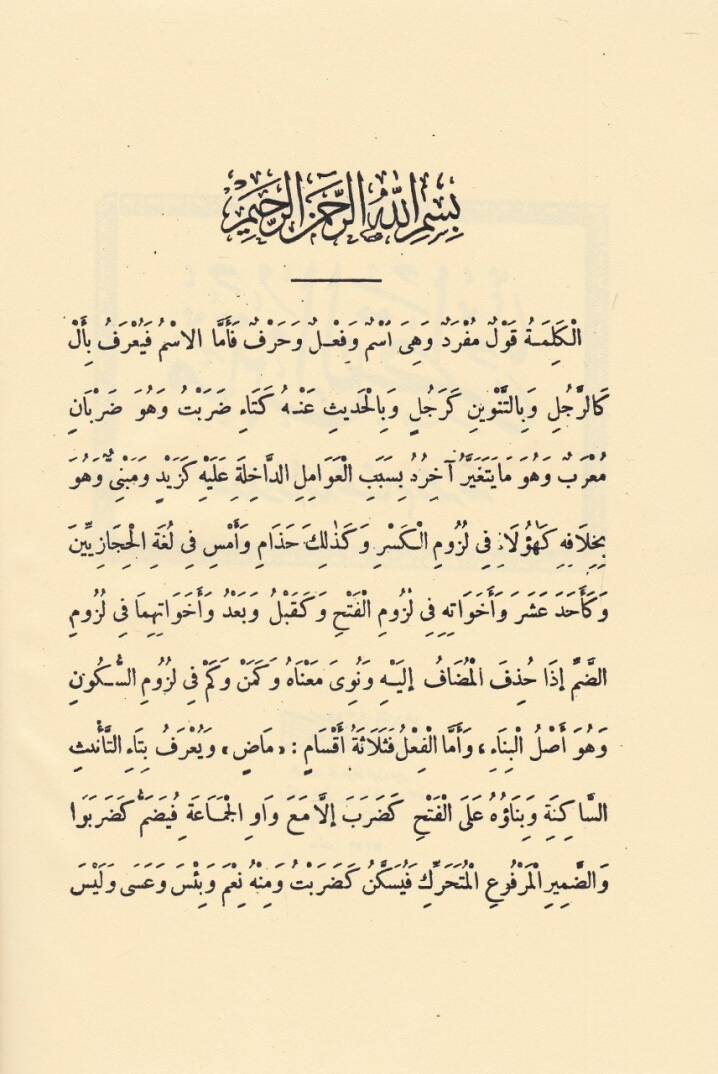 بِسْمِ اللهِ الرَّحْمٰنِ الرَّحِيمِ
الْكَلِمَةُ قَوْلٌ مُفْرَدٌ وَهِىَ اسْمٌ وَفِعْلٌ وَحَرْفٌ فَأَمَّا الاسْمُ فَيُعْرَفُ بِأَلْ
كَالرَّجُلِ وَبِالتَّنْوِينِ كَرَجُلٍ وَبِالْحَدِيثِ عَنْهُ كَتَاءِ ضَرَبْتُ وَهُوَ ضَرْبَانِ
مُعْرَبٌ وَهُوَ مَا يَتَغَيَّرُ آخِرُهُ بِسَبَبِ الْعَوَامِلِ الدَّاخِلَةِ عَلَيْهِ كَزَيْدٍ وَمَبْنِىٌّ وَهُوَ
بِخِلَافِهِ كَهٰؤُلَاءِ فِى لُزُومِ الْكَسْرِ وَكَذٰلِكَ حَذَامِ وَأَمْسِ فِى لُغَةِ الْحِجَازِيِّينَ
وَكَأَحَدَ عَشَرَ وَأَخَوَاتِهِ فِى لُزُومِ الْفَتْحِ وَكَقَبْلُ وَبَعْدُ وَأَخَوَاتِهِمَا فِى لُزُومِ
الضَّمِّ إِذَا حُذِفَ الْمُضَافُ إِلَيْهِ وَنُوِىَ مَعْنَاهُ وَكَمَنْ وَكَمْ فِى لُزُومِ السُّكُونِ
وَهُوَ أَصْلُ الْبِنَاءِ ، وَأَمَّا الْفِعْلُ فَثَلَاثَةُ أَقْسَامٍ : «مَاضٍ» وَيُعْرَفُ بِتَاءِ التَّأْنِيثِ
السَّاكِنَةِ وَبِنَاؤُهُ عَلَى الْفَتْحِ كَضَرَبَ إِلَّا مَعَ وَاوِ الْجَمَاعَةِ فَيُضَمُّ كَضَرَبُوا
وَالضَّمِيرِ الْمَرْفُوعِ الْمُتَحَرِّكِ فَيُسَكَّنُ كَضَرَبْتُ وَمِنْهُ نِعْمَ وَبِئْسَ وَعَسَى وَلَيْسَ